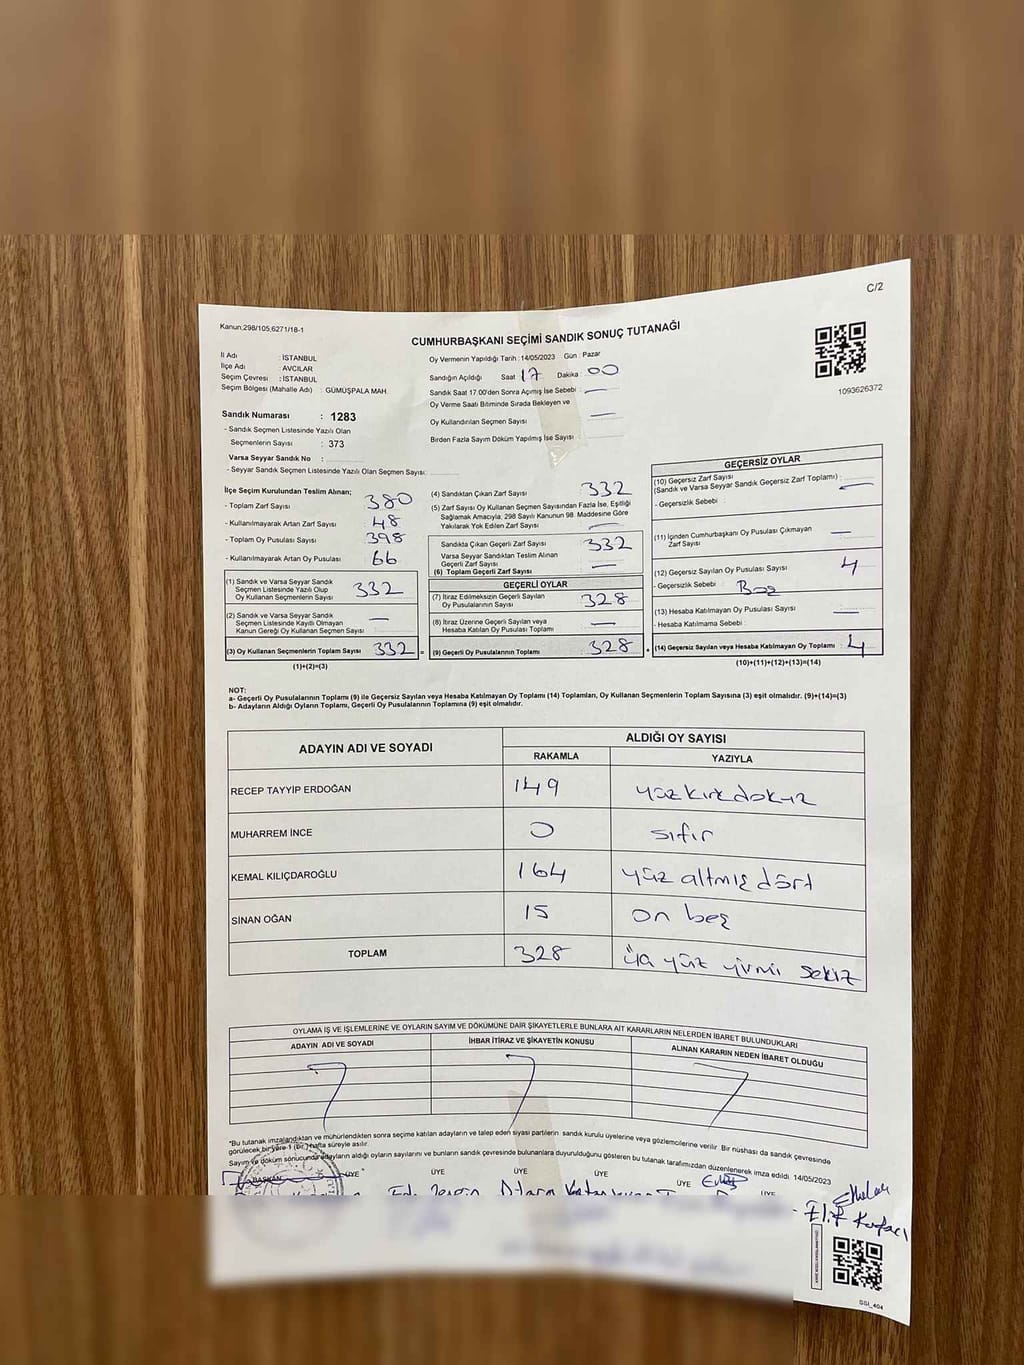 C/2
Kanun;298/105,6271/18-1
CUMHURBAŞKANI SEÇİMİ SANDIK SONUÇ TUTANAĞI
1093626372
İl Adı : İSTANBUL
İlçe Adı : AVCILAR
Seçim Çevresi : İSTANBUL
Seçim Bölgesi (Mahalle Adı) : GÜMÜŞPALA MAH.
Oy Vermenin Yapıldığı Tarih :14/05/2023 Gün : Pazar
Sandığın Açıldığı Saat 17 Dakika : 00
Sandık Saat 17.00'den Sonra Açımış İse Sebebi : —
Oy Verme Saati Bitiminde Sırada Bekleyen ve
Oy Kullandırılan Seçmen Sayısı —
Birden Fazla Sayım Döküm Yapılmış İse Sayısı :
Sandık Numarası : 1283
- Sandık Seçmen Listesinde Yazılı Olan
Seçmenlerin Sayısı : 373
Varsa Seyyar Sandık No :
- Seyyar Sandık Seçmen Listesinde Yazılı Olan Seçmen Sayısı:
İlçe Seçim Kurulundan Teslim Alınan;
- Toplam Zarf Sayısı 380
- Kullanılmayarak Artan Zarf Sayısı 48
- Toplam Oy Pusulası Sayısı 398
- Kullanılmayarak Artan Oy Pusulası 66
(1) Sandık ve Varsa Seyyar Sandık
Seçmen Listesinde Yazılı Olup
Oy Kullanan Seçmenlerin Sayısı 332
(2) Sandık ve Varsa Seyyar Sandık
Seçmen Listesinde Kayıtlı Olmayan
Kanun Gereği Oy Kullanan Seçmen Sayısı —
(3) Oy Kullanan Seçmenlerin Toplam Sayısı 332 =
(1)+(2)=(3)
(4) Sandıktan Çıkan Zarf Sayısı 332
(5) Zarf Sayısı Oy Kullanan Seçmen Sayısından Fazla İse, Eşitliği
Sağlamak Amacıyla, 298 Sayılı Kanunun 98. Maddesine Göre
Yakılarak Yok Edilen Zarf Sayısı —
Sandıkta Çıkan Geçerli Zarf Sayısı 332
Varsa Seyyar Sandıktan Teslim Alınan
Geçerli Zarf Sayısı —
(6) Toplam Geçerli Zarf Sayısı
GEÇERLİ OYLAR
(7) İtiraz Edilmeksizin Geçerli Sayılan
Oy Pusulalarının Sayısı 328
(8) İtiraz Üzerine Geçerli Sayılan veya
Hesaba Katılan Oy Pusulası Toplamı —
(9) Geçerli Oy Pusulalarının Toplamı 328 +
GEÇERSİZ OYLAR
(10) Geçersiz Zarf Sayısı
(Sandık ve Varsa Seyyar Sandık Geçersiz Zarf Toplamı) : —
- Geçersizlik Sebebi :
(11) İçinden Cumhurbaşkanı Oy Pusulası Çıkmayan
Zarf Sayısı —
(12) Geçersiz Sayılan Oy Pusulası Sayısı 4
- Geçersizlik Sebebi : Boş
(13) Hesaba Katılmayan Oy Pusulası Sayısı —
- Hesaba Katılmama Sebebi :
(14) Geçersiz Sayılan veya Hesaba Katılmayan Oy Toplamı : 4
(10)+(11)+(12)+(13)=(14)
NOT:
a- Geçerli Oy Pusulalarının Toplamı (9) ile Geçersiz Sayılan veya Hesaba Katılmayan Oy Toplamı (14) Toplamları, Oy Kullanan Seçmenlerin Toplam Sayısına (3) eşit olmalıdır. (9)+(14)=(3)
b- Adayların Aldığı Oyların Toplamı, Geçerli Oy Pusulalarının Toplamına (9) eşit olmalıdır.
ADAYIN ADI VE SOYADI
ALDIĞI OY SAYISI
RAKAMLA YAZIYLA
RECEP TAYYİP ERDOĞAN 149 yüz kırk dokuz
MUHARREM İNCE 0 sıfır
KEMAL KILIÇDAROĞLU 164 yüz altmış dört
SİNAN OĞAN 15 on beş
TOPLAM 328 üç yüz yirmi sekiz
OYLAMA İŞ VE İŞLEMLERİNE VE OYLARIN SAYIM VE DÖKÜMÜNE DAİR ŞİKAYETLERLE BUNLARA AİT KARARLARIN NELERDEN İBARET BULUNDUKLARI
ADAYIN ADI VE SOYADI İHBAR İTİRAZ VE ŞİKAYETİN KONUSU ALINAN KARARIN NEDEN İBARET OLDUĞU
*Bu tutanak imzalandıktan ve mühürlendikten sonra seçime katılan adayların ve talep eden siyasi partilerin sandık kurulu üyelerine veya gözlemcilerine verilir. Bir nüshası da sandık çevresinde
görülecek bir yere 1 (bir) hafta süreyle asılır.
Sayım ve döküm sonucunda adayların aldığı oyların sayılarını ve bunların sandık çevresinde bulunanlara duyurulduğunu gösteren bu tutanak tarafımızdan düzenlenerek imza edildi. 14/05/2023
BAŞKAN ÜYE ÜYE ÜYE ÜYE ÜYE ÜYE
Elif
SSI_404